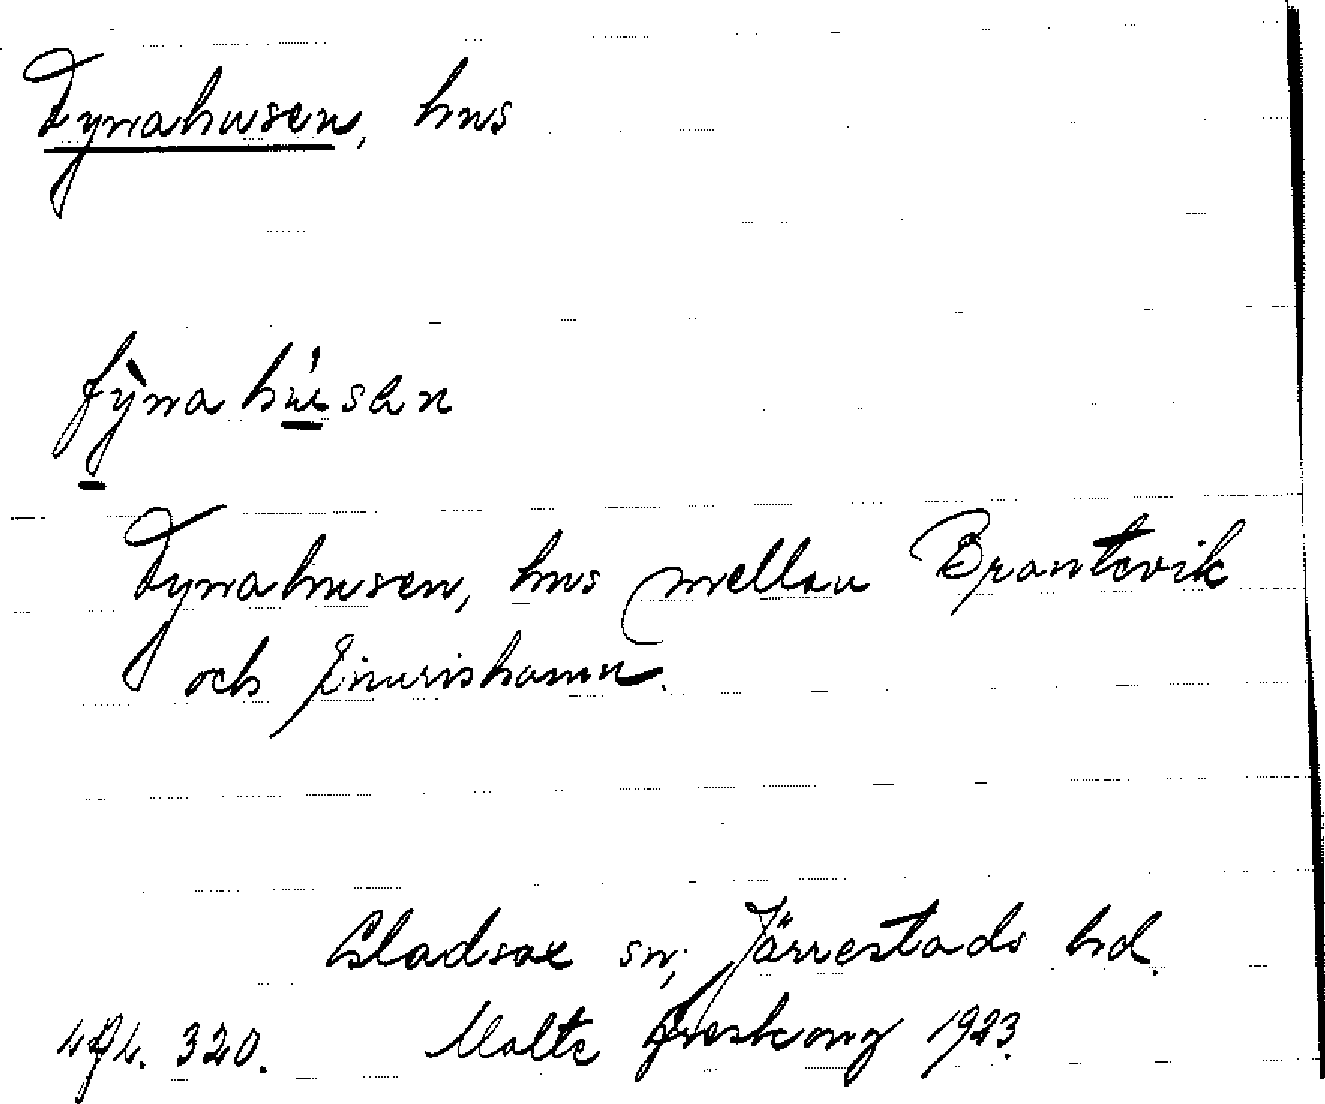 Fyrahusen, hus
fỳrahúsen
Fyrahusen, hus mellan Brantevik
och Simrishamn.
Gladsax sn, Järrestads hd.
320. Malte 1923.